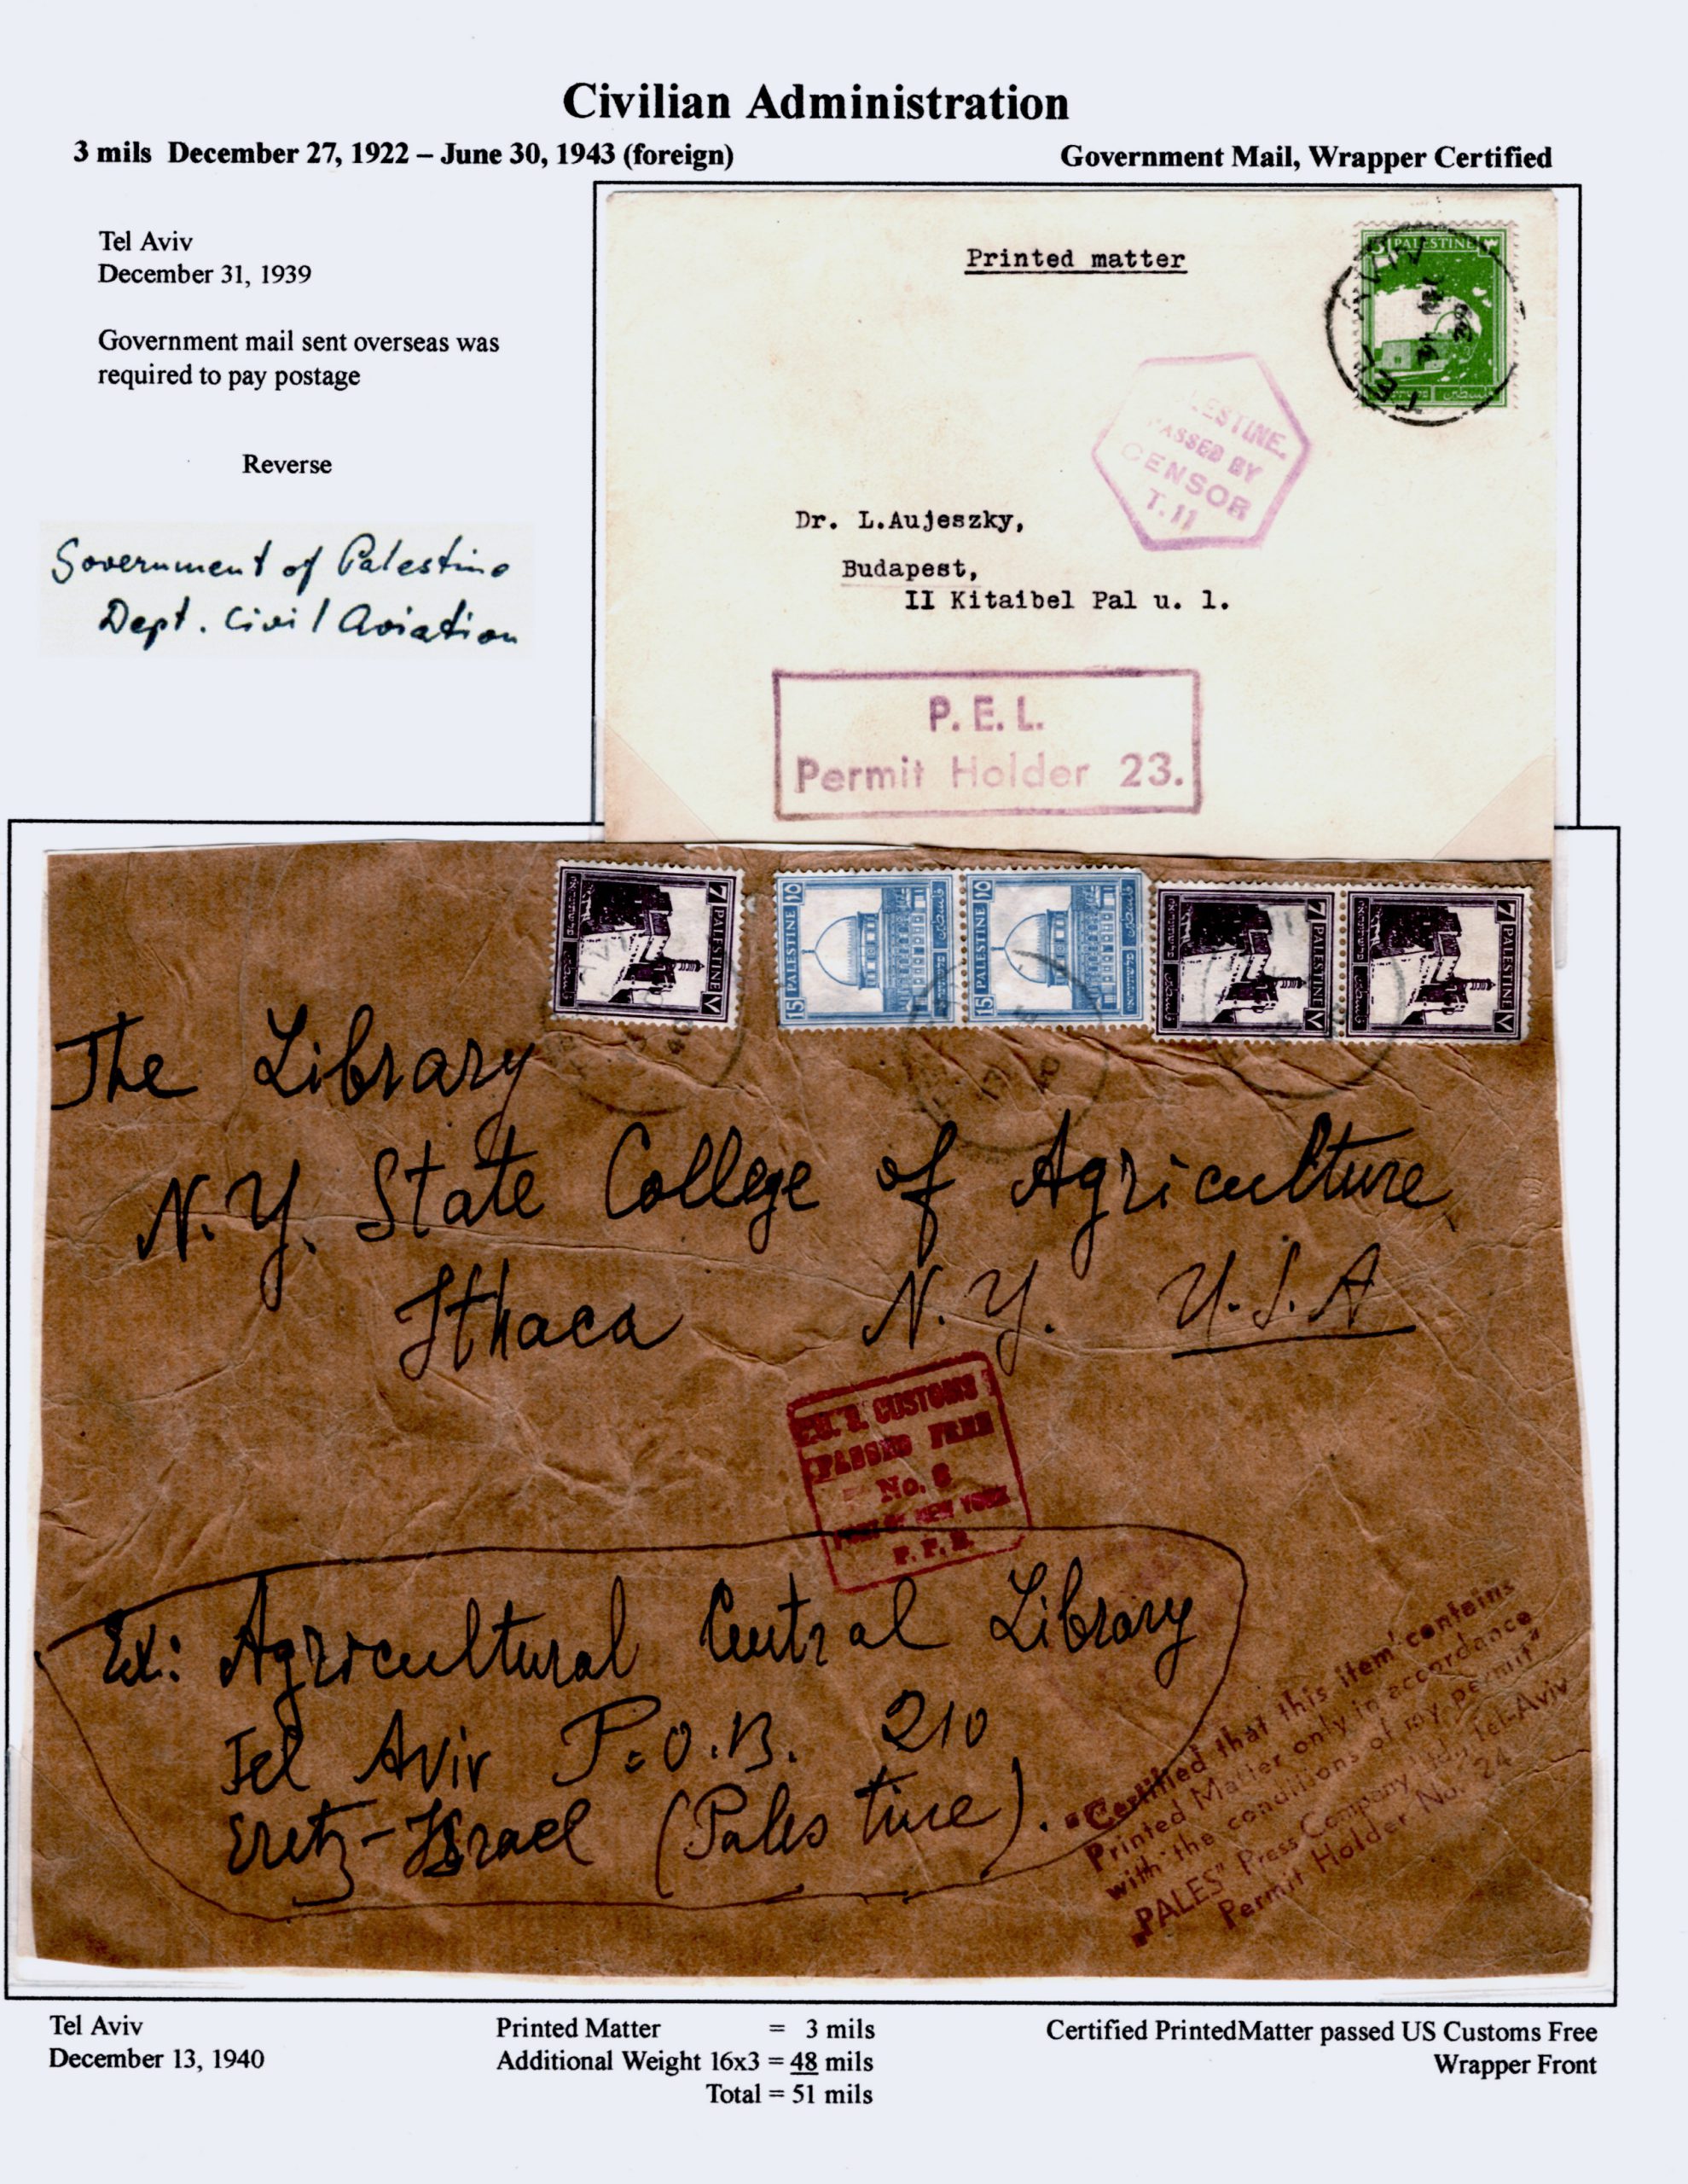 Civilian Administration
3 mils December 27, 1922 – June 30, 1943 (foreign)
Government Mail, Wrapper Certified
Tel Aviv
December 31, 1939
Government mail sent overseas was
required to pay postage
Reverse
Government of Palestine
Dept. Civil Aviation
Printed matter
3 PALESTINE ٣
TEL AVIV
PALESTINE.
PASSED BY
CENSOR
T.11
Dr. L.Aujeszky,
Budapest,
II Kitaibel Pal u. 1.
P. E. L.
Permit Holder 23.
7 PALESTINE ٧
15 PALESTINE ١٥
15 PALESTINE ١٥
7 PALESTINE ٧
7 PALESTINE ٧
The Library
N.Y. State College of Agriculture
Ithaca N.Y. U.S.A
U.S. CUSTOMS
PASSED FREE
No. 6
PORT OF NEW YORK
Ex: Agricultural Central Library
Tel Aviv P.O.B. 210
Eretz-Israel (Palestine).
"Certified that this item contains
Printed Matter only in accordance
with the conditions of my permit"
"PALES" Press Company Ltd., Tel-Aviv
Permit Holder No. 24
Tel Aviv
December 13, 1940
Printed Matter = 3 mils
Additional Weight 16x3 = 48 mils
Total = 51 mils
Certified PrintedMatter passed US Customs Free
Wrapper Front